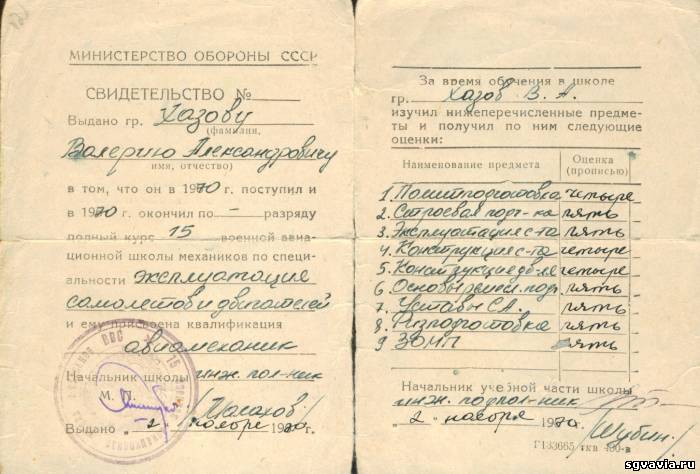 МИНИСТЕРСТВО ОБОРОНЫ СССР
СВИДЕТЕЛЬСТВО №
Выдано гр. Хазову
(фамилия,
Валерию Александровичу
имя, отчество)
в том, что он в 1970 г. поступил и
в 1970 г. окончил по – разряду
полный курс 15 военной авиа-
ционной школы механиков по специ-
альности эксплуатация
самолетов и двигателей
и ему присвоена квалификация
авиамеханик
Начальник школы инж. пол-ник
М. П.
Выдано „2" ноября 1970 г.
За время обучения в школе
гр. Хазов В. А.
изучил нижеперечисленные предме-
ты и получил по ним следующие
оценки:
Наименование предмета Оценка
(прописью)
1. Политподготовка четыре
2. Строевая подг-ка пять
3. Эксплуатация с-та пять
4. Конструкция с-та четыре
5. Конструкция дв-ля четыре
6. Основы пять
7. Уставы СА. пять
8. Физподготовка пять
9 ЗОМП пять
Начальник учебной части школы
инж. подпол-ник
„2" ноября 1970 г. /Шубин/
Г-133665 ткв 490-в
sgvavia.ru